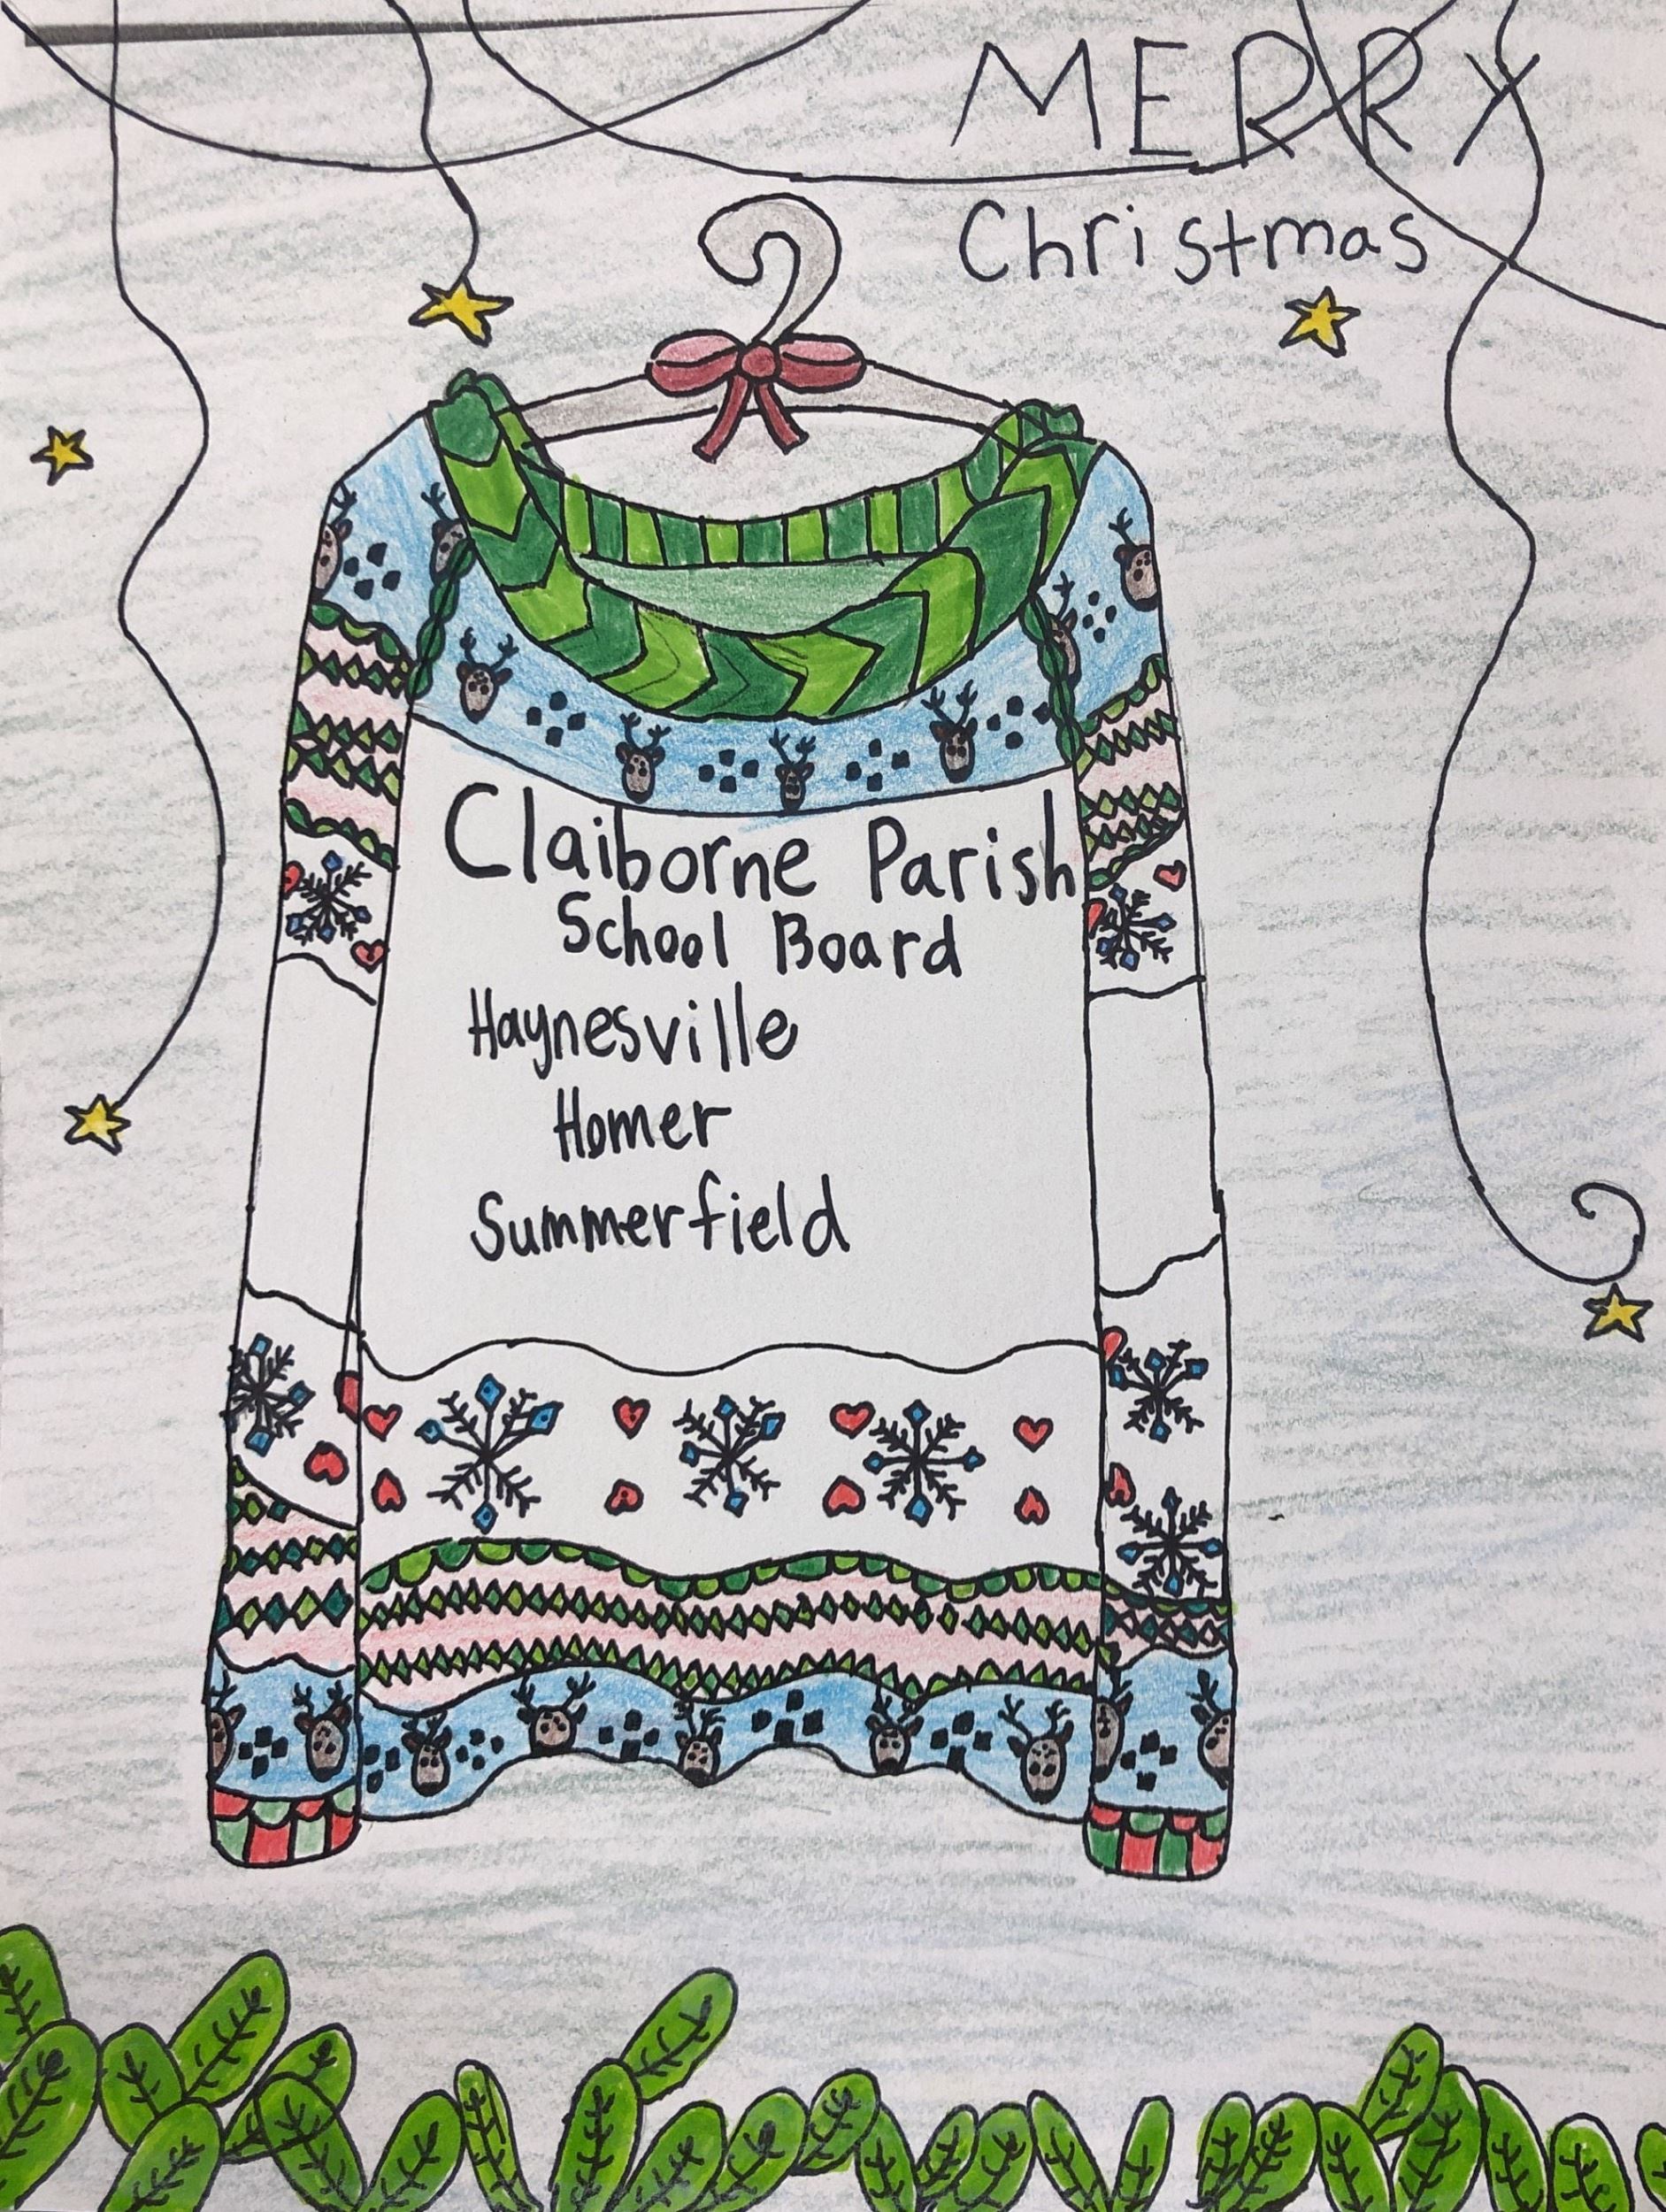 MERRY
Christmas
Claiborne Parish
School Board
Haynesville
Homer
Summerfield